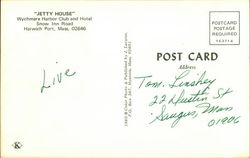 "JETTY HOUSE"
Wychmere Harbor Club and Hotel
Snow Inn Road
Harwich Port, Mass. 02646
POSTCARD
POSTAGE
REQUIRED
POST CARD
Address
Live
Tom Linskey
22 Dustin St
Saugus, Mass
01906
K